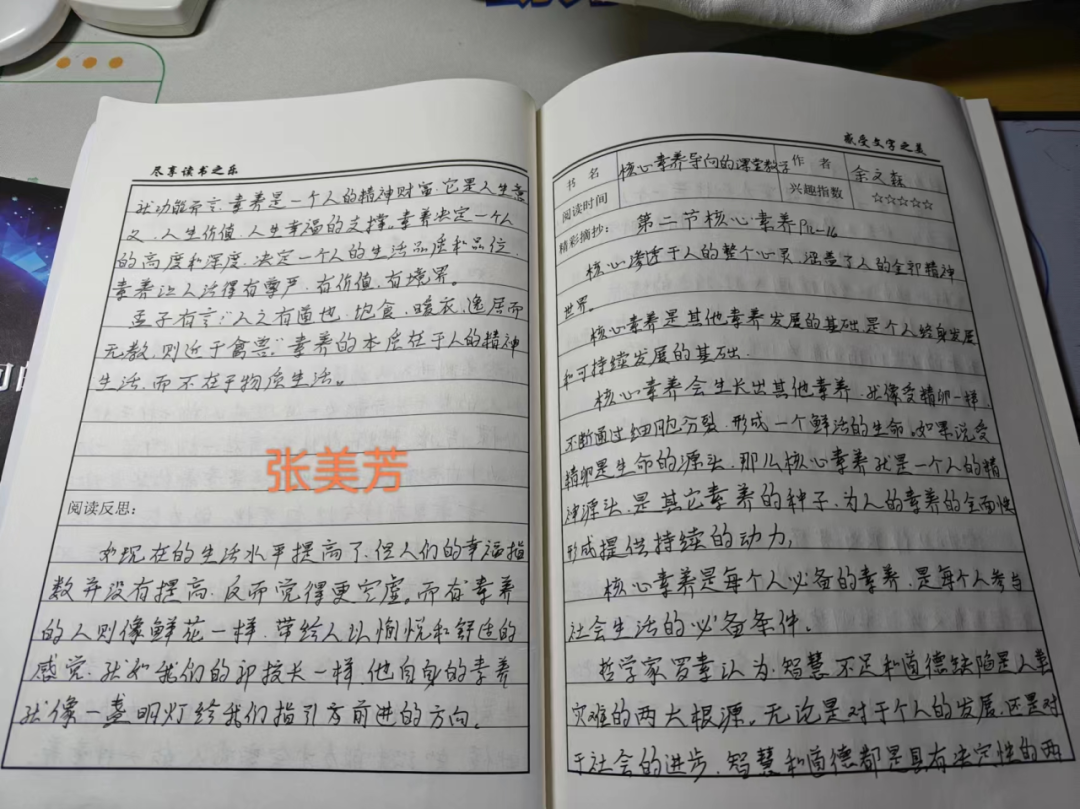 尽享读书之乐
就功能而言,素养是一个人的精神财富,它是人生意
义、人生价值、人生幸福的支撑。素养决定一个人
的高度和深度,决定一个人的生活品质和品位,
素养让人活得有尊严、有价值、有境界。
孟子有言:“人之有道也,饱食、暖衣、逸居而
无教,则近于禽兽。”素养的本质在于人的精神
生活,而不在于物质生活。
张美芳
阅读反思:
如现在的生活水平提高了,但人们的幸福指
数并没有提高,反而觉得更空虚。而有素养
的人则像鲜花一样,带给人以愉悦和舒适的
感觉,就如我们的印校长一样,他自身的素养
就像一盏明灯给我们指引方前进的方向。
感受文字之美
书名 核心素养导向的课堂教学 作者 余文森
阅读时间 兴趣指数 ☆☆☆☆☆
精彩摘抄: 第二节核心素养P11-16
核心渗透于人的整个心灵,涵盖了人的全部精神
世界。
核心素养是其他素养发展的基础,是个人终身发展
和可持续发展的基础.
核心素养会生长出其他素养,就像受精卵一样,
不断通过细胞分裂,形成一个鲜活的生命。如果说受
精卵是生命的源头,那么核心素养就是一个人的精
神源头,是其它素养的种子,为人的素养的全面性
形成提供持续的动力,
核心素养是每个人必备的素养,是每个人参与
社会生活的必备条件.
哲学家罗素认为:智慧不足和道德缺陷是人类
灾难的两大根源。无论是对于个人的发展,还是对
于社会的进步,智慧和道德都是具有决定性的两